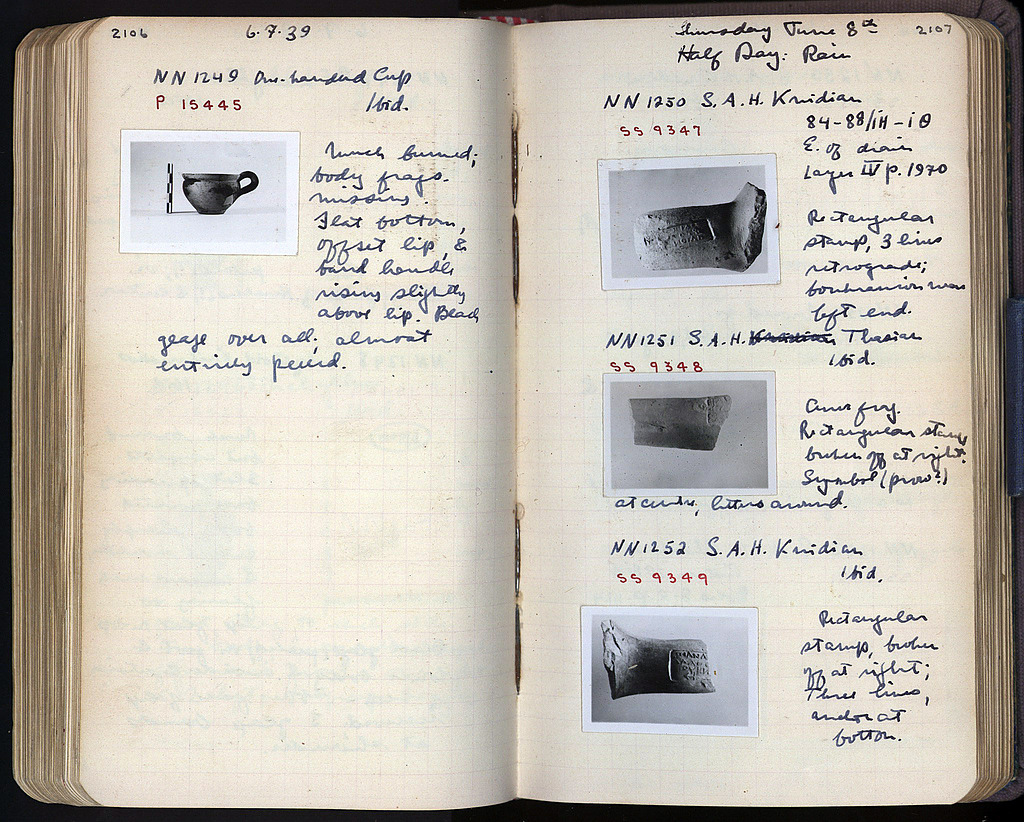 2106
6.7.39
NN 1249 One-handed Cup
P 15445
Ibid.
Much burned;
body frags.
missing.
Flat bottom,
offset lip, &
band handle
rising slightly
above lip. Black
glaze over all, almost
entirely peeled.
Thursday June 8th
2107
Half Day: Rain
NN 1250 S.A.H. Knidian
SS 9347
84-88/IH-IΘ
E. of drain
Layer IV p. 1970
Rectangular
stamp, 3 lines
retrograde;
boukranion near
left end.
NN 1251 S.A.H. Knidian Thasian
SS 9348
Ibid.
Rectangular stamp
broken off at right.
Symbol (prow?)
at center, letters around.
NN 1252 S.A.H. Knidian
SS 9349
Ibid.
Rectangular
stamp, broken
off at right;
Three lines,
anchor at
bottom.